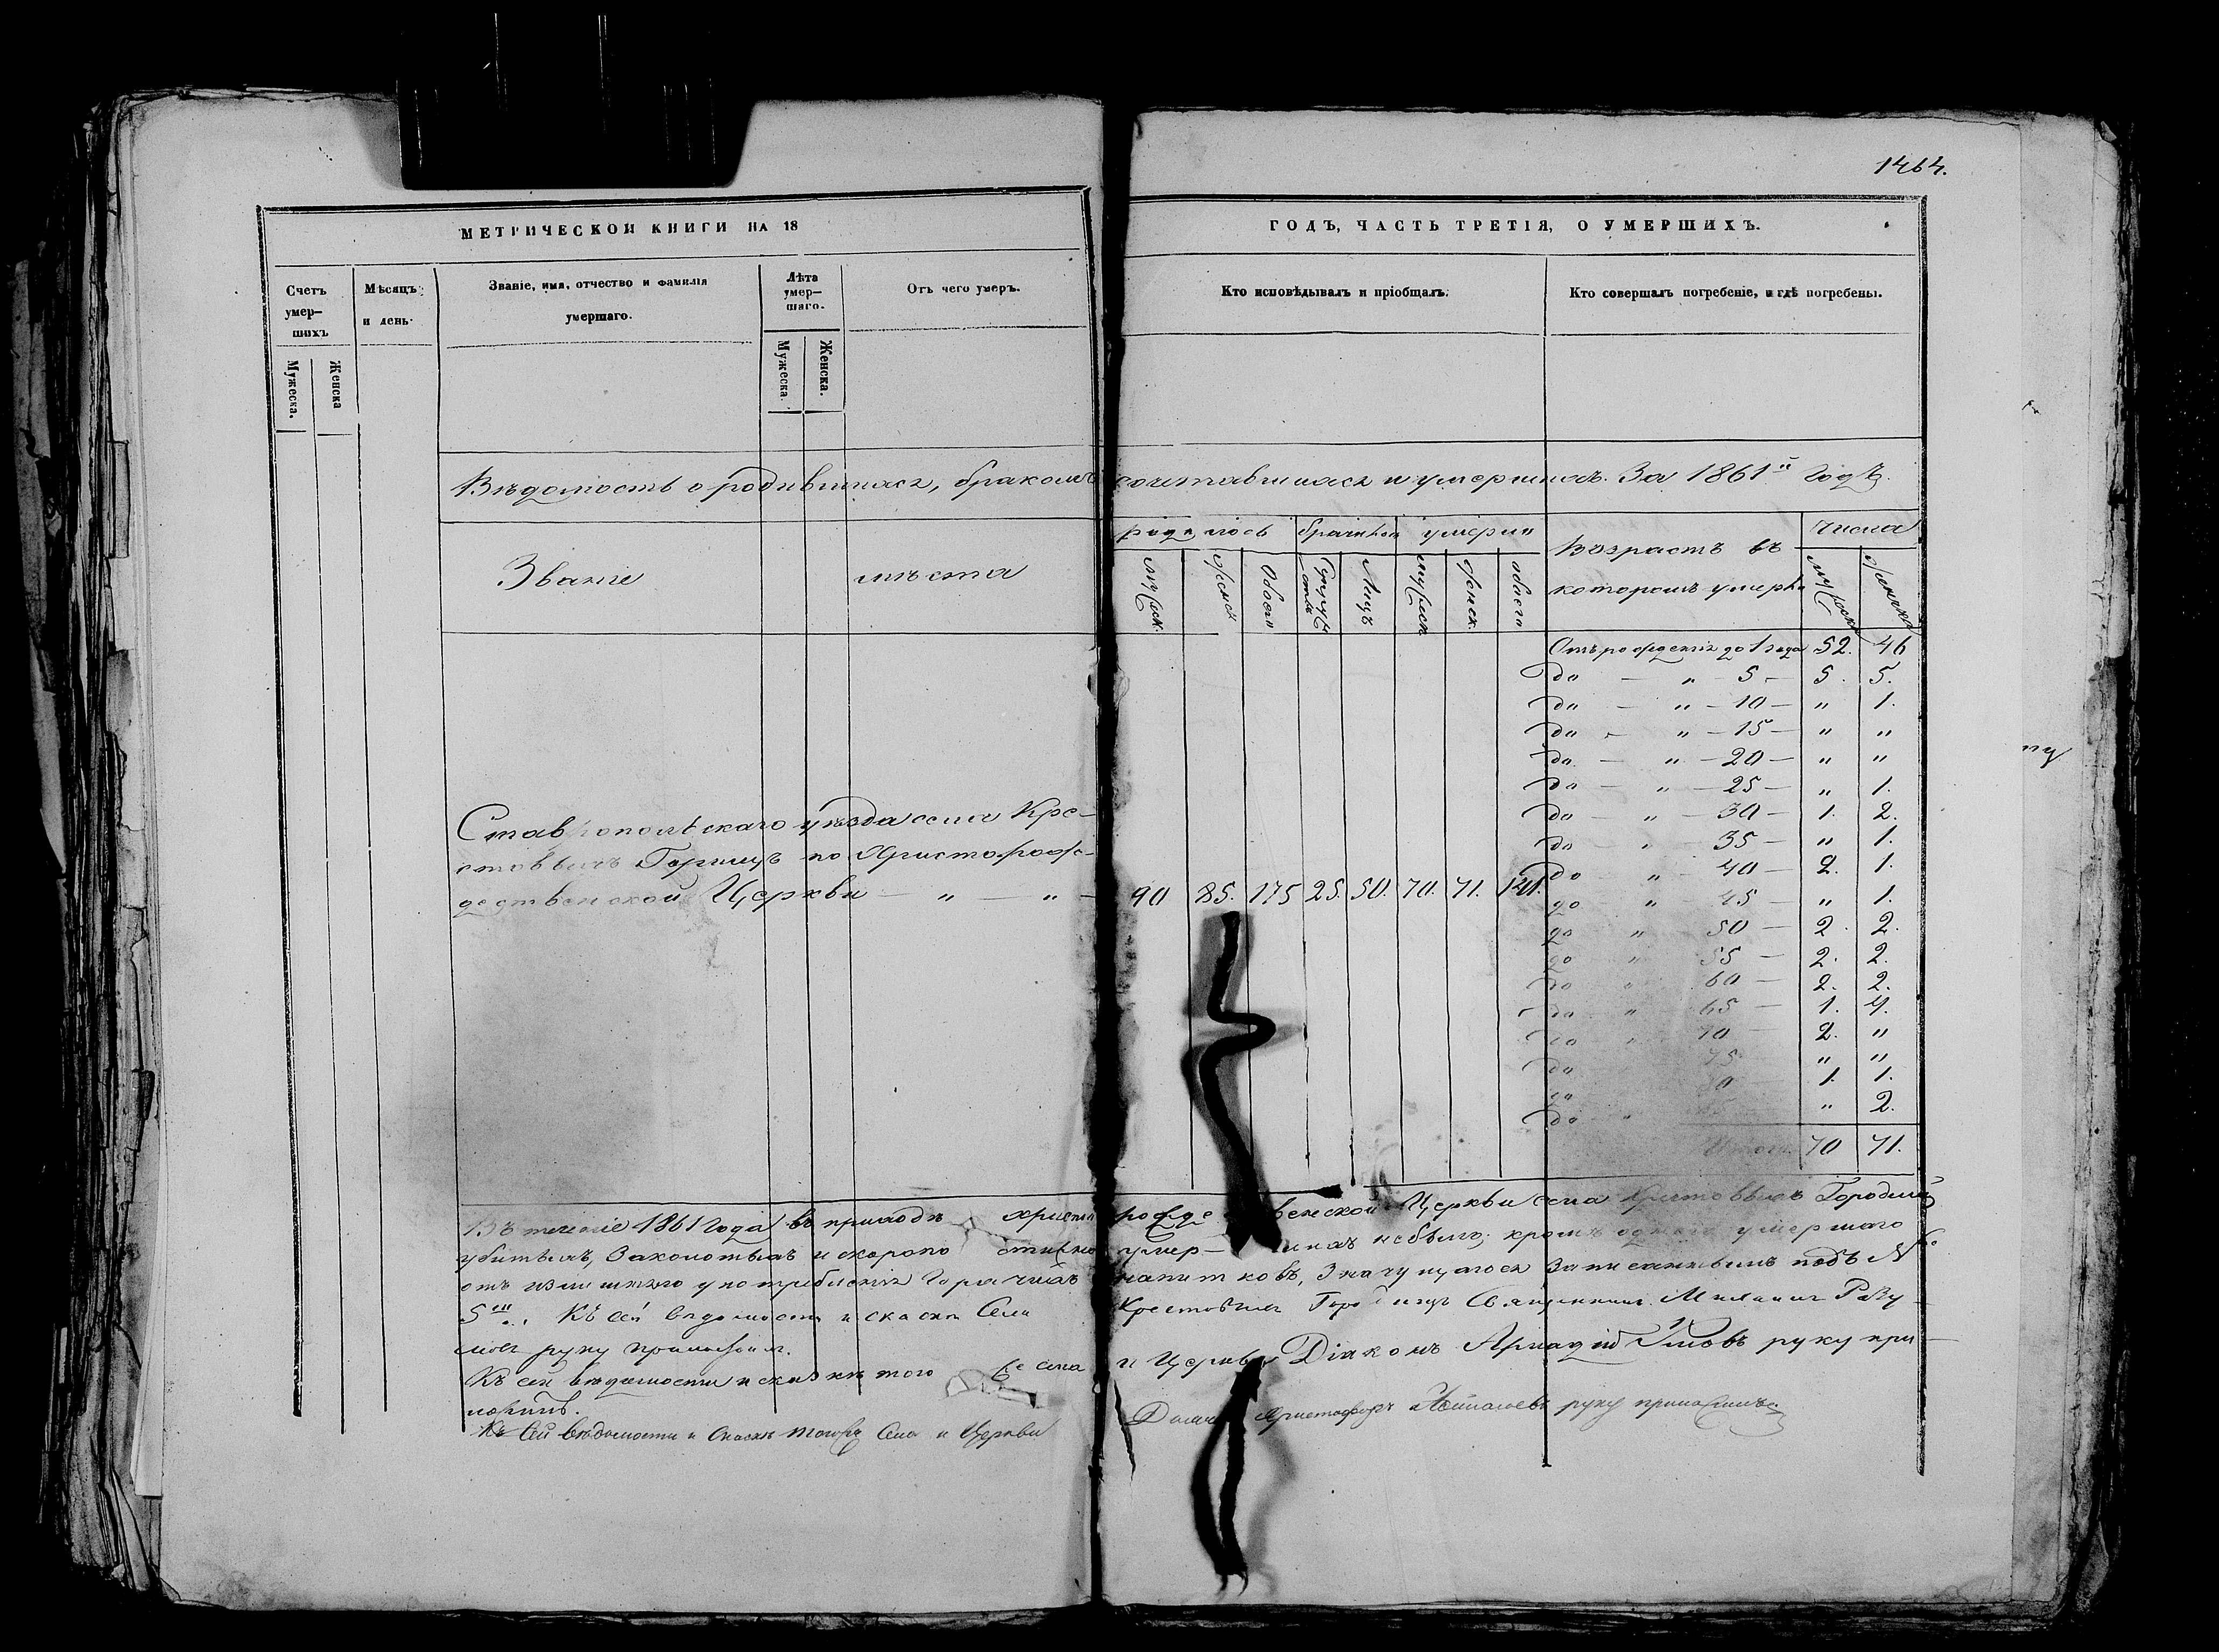 1464.
МЕТРИЧЕСКОЙ КНИГИ НА 18
ГОДЪ, ЧАСТЬ ТРЕТІЯ, О УМЕРШИХЪ.
Счетъ умер-шихъ
Мѣсяцъ и день.
Званіе, имя, отчество и фамилія умершаго.
Лѣта умер-шаго.
Отъ чего умеръ.
Кто исповѣдывалъ и пріобщалъ.
Кто совершалъ погребеніе, и гдѣ погребены.
Мужеска.
Женска
Мужеска.
Женска.
Вѣдомость о родившихся, бракомъ сочетавшихся и умершихъ. За 1861й Годъ.
Званіе мѣста
родилось
умерло
Обоего
Лицъ
обоего
Возрастъ въ
которомъ умерли
Числа
Отъ рожденія до 1 года 52. 46
до — " — 5 — 5. 5.
до — " — 10 — " 1.
до — " — 15 — " "
до — " — 20 — " "
до — " — 25 — " 1.
до — " — 30 — 1. 2.
до — " — 35 — " 1.
до — " — 40 — 2. 1.
до " 45 — " 1.
до " 50 — 2. 2.
до " 55 — 2. 2.
до " 60 — 2. 2.
до " 65 — 1. 4.
до " 70 2. "
до 75 " "
до 80 1. 1.
до " " 2.
Итого 70 71.
Ставропольскаго уѣзда села Кре-
стовыхъ Городищъ по Христорож-
дественской Церкви — " — " —
90 85. 175 25. 50. 70. 71. 141.
Въ теченіе 1861 года въ приходѣ Христорождественской Церкви села Крестовыхъ Городищъ
убитыхъ, Заколотыхъ и скоропостижно умер- шихъ небыло; кромѣ одного умершаго
отъ излишняго употребленія Горячихъ напитковъ, Значущагося Записаннымъ подъ №
5м. Къ сей вѣдомости и сказкѣ Села Крестовыхъ Городищъ Священникъ
руку приложилъ.
Къ сей вѣдомости и сказкѣ того же села и Церкви Діаконъ Аркадій Умовъ руку при-
ложилъ.
Къ Сей вѣдомости и Сказкѣ тогоже Села и Церкви Дьячекъ Христофоръ руку приложилъ.